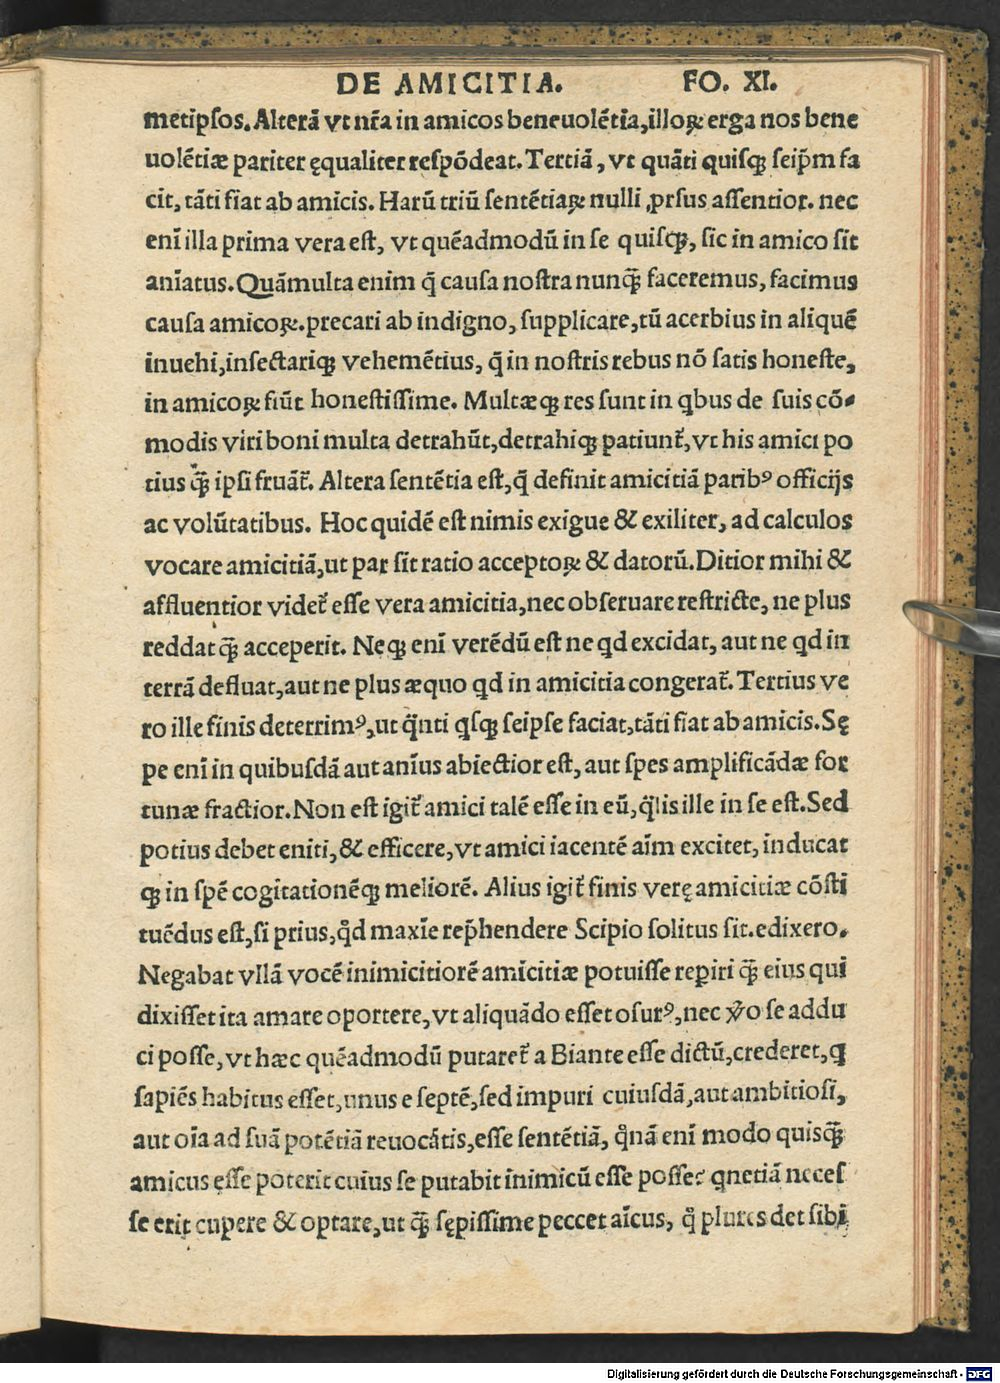 DE AMICITIA. FO. XI.
metipſos. Alterā vt nr̄a in amicos beneuolētia, illoꝝ erga nos bene
uolētiæ pariter ęqualiter reſpōdeat. Tertiā, vt quāti quiſqꝫ ſeip̄m fa
cit, tāti fiat ab amicis. Harū triū ſentētiaꝝ nulli ꝓrſus aſſentior. nec
eni̅ illa prima vera eſt, vt quēadmodū in ſe quiſqꝫ, ſic in amico ſit
ani̅atus. Quāmulta enim q̄ cauſa noſtra nunqꝫ̄ faceremus, facimus
cauſa amicoꝝ. precari ab indigno, ſupplicare, tū acerbius in aliquē
inuehi, inſectariqꝫ vehemētius, q̄ in noſtris rebus nō ſatis honeſte,
in amicoꝝ fiūt honeſtiſſime. Multæqꝫ res ſunt in qbus de ſuis cō-
modis viri boni multa detrahūt, detrahiqꝫ patiunt̃, vt his amici po
tius qꝫ̄ ipſi fruāt̃. Altera ſentētia eſt, q̄ definit amicitiā paribꝰ officijs
ac volūtatibus. Hoc quidē eſt nimis exigue & exiliter, ad calculos
vocare amicitiā, ut par ſit ratio acceptoꝝ & datorū. Ditior mihi &
affluentior videt̃ eſſe vera amicitia, nec obſeruare reſtricte, ne plus
reddat qꝫ̄ acceperit. Neqꝫ eni̅ verēdū eſt ne qd excidat, aut ne qd in
terrā defluat, aut ne plus æquo qd in amicitia congerat̃. Tertius ve
ro ille finis deterrimꝰ, ut q̄nti qſqꝫ ſeipſe faciat, tāti fiat ab amicis. Sę
pe eni̅ in quibuſdā aut ani̅us abiectior eſt, aut ſpes amplificādæ for
tunæ fractior. Non eſt igit̃ amici talē eſſe in eū, q̄lis ille in ſe eſt. Sed
potius debet eniti, & efficere, vt amici iacentē ai̅m excitet, inducat
qꝫ in ſpē cogitationēqꝫ meliorē. Alius igit̃ finis verę amicitiæ cōſti
tuēdus eſt, ſi prius, qͦd maxi̅e rep̄hendere Scipio ſolitus ſit. edixero.
Negabat vllā vocē inimicitiorē amicitiæ potuiſſe reꝑiri qꝫ̄ eius qui
dixiſſet ita amare oportere, vt aliquādo eſſet oſurꝰ, nec ꝟo ſe addu
ci poſſe, vt hæc quēadmodū putaret̃ a Biante eſſe dictū, crederet, q
ſapiēs habitus eſſet, unus e ſeptē, ſed impuri cuiuſdā, aut ambitioſi,
aut oi̅a ad ſuā potētiā reuocātis, eſſe ſentētiā, qͦnā eni̅ modo quiſqꝫ̄
amicus eſſe poterit cuius ſe putabit inimicū eſſe poſſe? qnetiā neceſ
ſe erit cupere & optare, ut qꝫ̄ ſępiſſime peccet ai̅cus, qͦ plures det ſibi
Digitalisierung gefördert durch die Deutsche Forschungsgemeinschaft - DFG